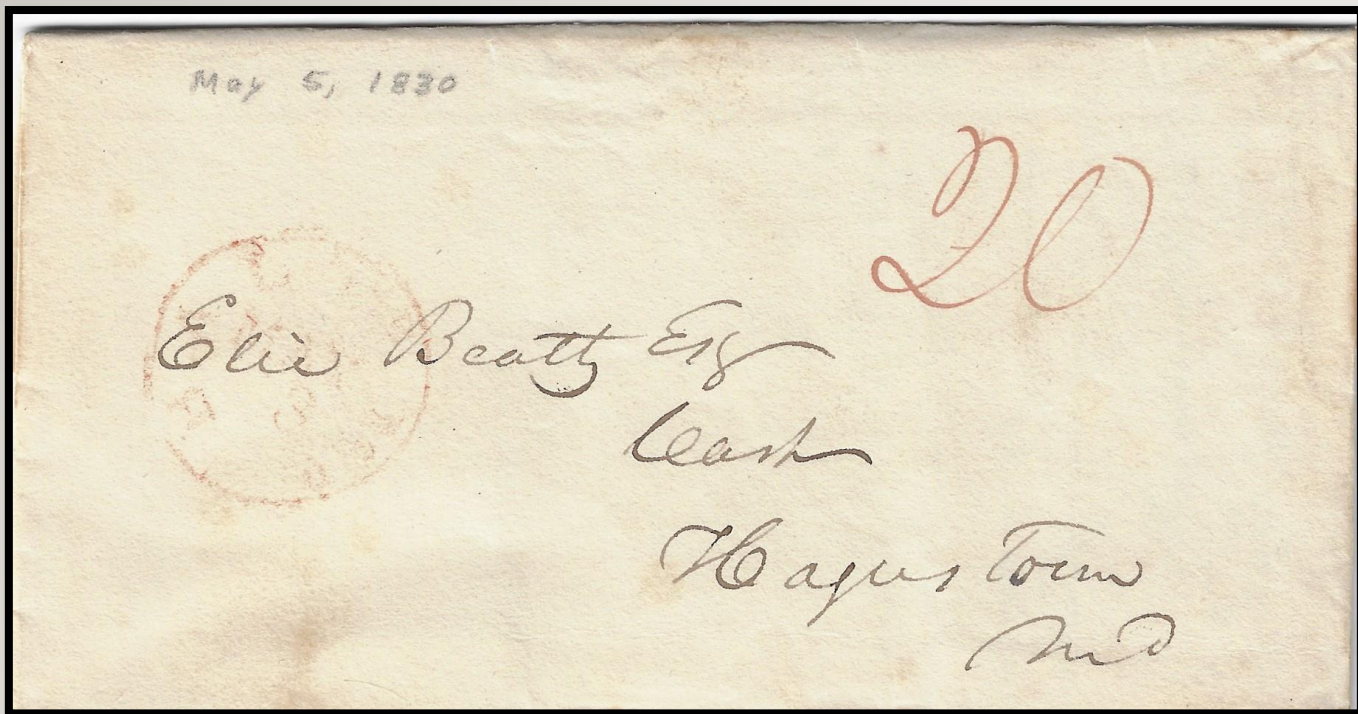 May 5, 1830
20
Elie Beatty Esq
Cash
Hagers Town
Md